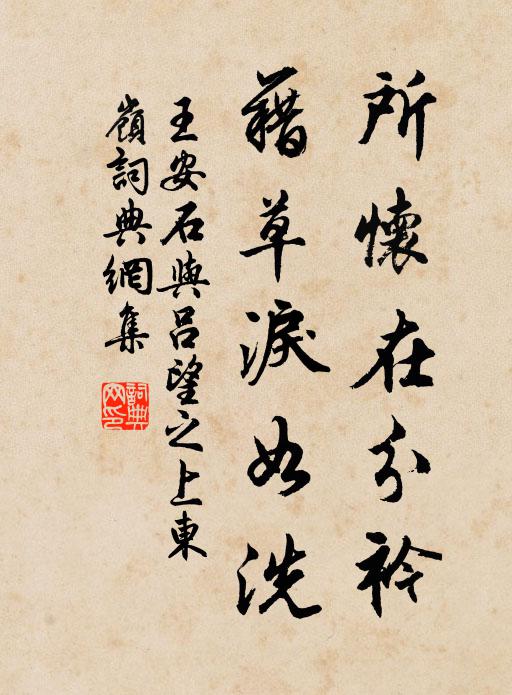 所懷在分衿
藉草淚如洗
王安石與呂望之上東
嶺詞典網集
詞典網印